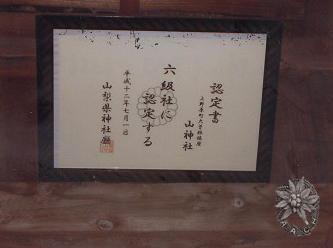 認定書
上野原町大曽根鎮座
山神社
六級社に
認定する
平成十二年七月一日
山梨県神社廳